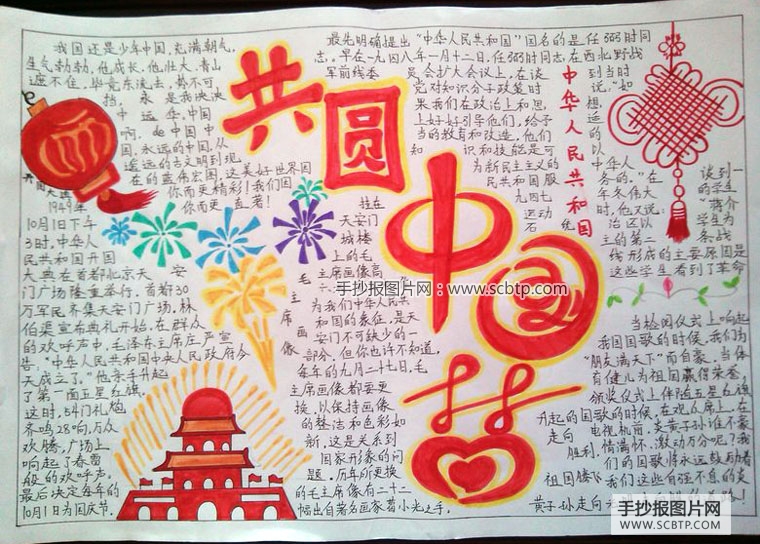 我国还是少年中国,充满朝气,
生气勃勃,他成长,他壮大,青山
遮不住,毕竟东流去,势不可
挡,永是我泱泱
中远华,中国
啊,中国中
国,永远的中国,从
遥远的古文明到现
在的蓝伟宏图,这美好世界因
你而更精彩!我们因
你而更直著!
共圆
中国梦
开国大
1949年
10月1日下午
3时,中华人
民共和国开国
大典在首都北京天安
门广场隆重举行,首都30
万军民齐集天安门广场,林
伯渠宣布典礼开始,在群众
的欢呼声中,毛泽东主席庄严宣
告:"中华人民共和国中央人民政府今
天成立了。"他亲手升起
了第一面五星红旗,
这时,54门礼炮
齐鸣28响,万众
欢腾,广场上
响起了春雷
般的欢呼声,
最后决定每年的
10月1日为国庆节。
毛主席画像
挂在
天安门
城楼
上的毛
主席画像高
为我们中华人民共
和国的象征,是天
安门不可缺少的一
部分,但你也许不知道,
每年的九月二十七日,毛
主席画像都要更
换,以保持画像
的整洁和色彩如
新,这是关系到
国家形象的问
题。历年所更换
的毛主席像有二十二
幅出自著名画家葛小光之手,
中华人民共和国
最先明确提出"中华人民共和国"国名的是任弼时同
志。早在一九四八年一月十二日,任弼时同志在西北野战
军前线委员会扩大会议上,在谈到当时
党对知识分子政策时说,"如
果我们在政治上和思想,
上好好引导他们,给予适
当的教育和改造,他们的
知识和技能是可以
为新民主主义的中华人
民共和国服务的。"在
九四七年冬伟大
运动时,他又说:
石统治区以
主的第二条战
线形成的主要原因是
这些学生看到了革命
谈到一
的学生
"蒋介
学生为
当检阅仪式上响起
我国国歌的时候,我们为
"朋友满天下"而自豪,当体
育健儿为祖国赢得荣誉,
颁奖仪式上伴随五星红旗
升起的国歌的时候,在观众席上,在
电视机前,炎黄子孙谁不豪
情满怀,激动万分呢?我
们的国歌将永远鼓励着
我们这些自强不息的炎
黄子孙走向
走向
胜利,
祖国腾飞
手抄报图片网:www.scbtp.com
手抄报图片网
WWW.SCBTP.COM